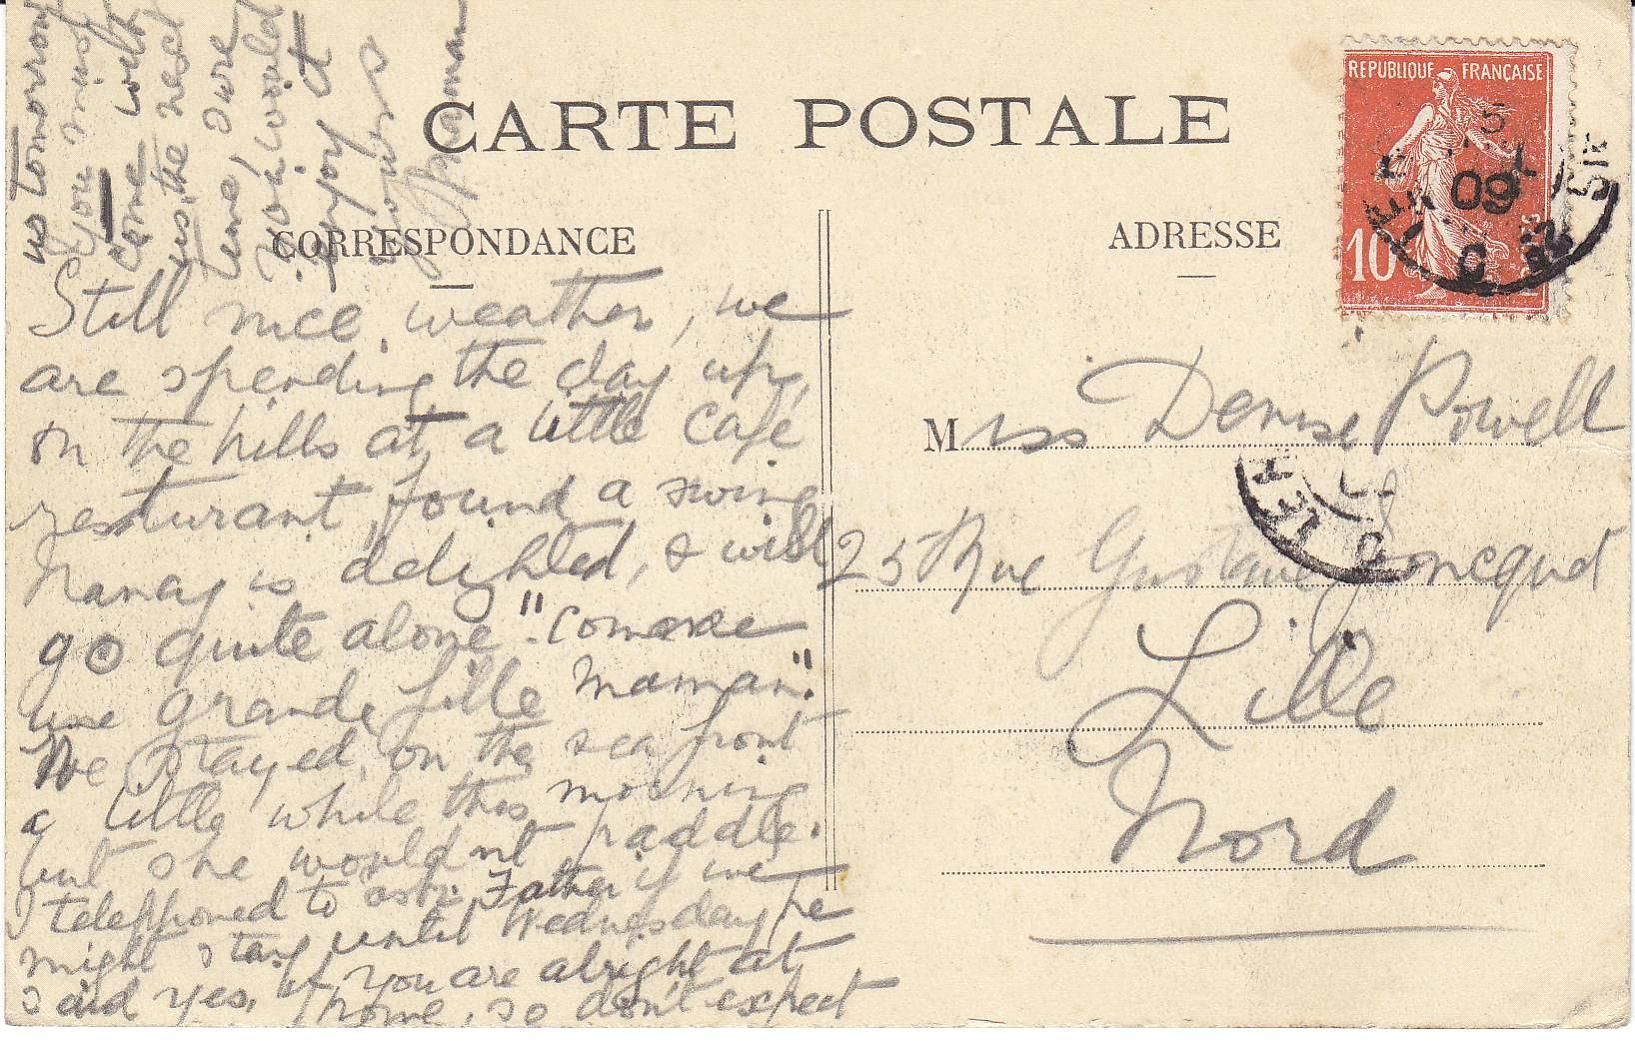 CARTE POSTALE
CORRESPONDANCE
ADRESSE
REPUBLIQUE FRANÇAISE
10
09
Still nice weather, we
are spending the day up,
on the hills at a little café
resturant, found a swing
Nancy is delighted, & will
go quite alone "comme
une grande fille Maman."
We stayed on the sea front
a little while this morning
but she wouldn't paddle.
I telephoned to ask Father if we
might stay until Wednesday he
said yes, if you are alright at
home, so don't expect
us tomorrow
you must
come with
us, the next
time, sure
you would
enjoy it
Miss Denise Powell
25 Rue Gustave Joncquet
Lille
Nord